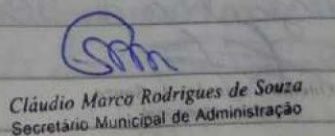 Cláudio Marco Rodrigues de Souza
Secretário Municipal de Administração